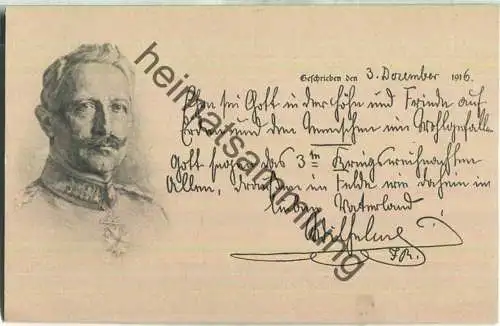 Geschrieben den 3. Dezember 1916.
Ehre sei Gott in der Höhe und Friede auf
Erden und den Menschen ein Wohlgefallen
Gott segne das 3te Kriegsweihnachten
Allen, draussen im Felde wie daheim im
lieben Vaterland
Wilhelm
I.R.
heimatsammlung.de